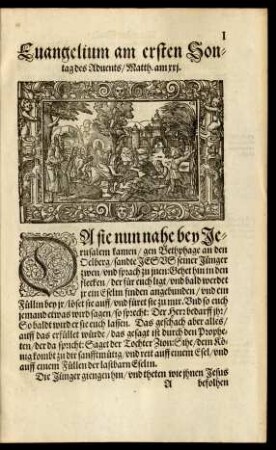 I
Euangelium am ersten Son-
tag des Aduents/ Matth. am xxj.
DA sie nun nahe bey Je-
rusalem kamen/ gen Bethphage an den
Oelberg/ sandte JESVS seiner Jünger
zween/ vnd sprach zu jnen: Gehet hin in den
flecken/ der für euch ligt/ vnd bald werdet
jr ein Eselin finden angebunden/ vnd ein
Füllen bey jr/ löset sie auff/ vnd füret sie zu mir. Vnd so euch
jemand etwas wird sagen/ so sprecht: Der Herr bedarff jhr/
So bald wird er sie euch lassen. Das geschach aber alles/
auff das erfüllet würde/ das gesagt ist durch den Prophe-
ten/ der da spricht: Saget der Tochter Zion: Sihe/ dein Kö-
nig kombt zu dir sanfftmütig/ vnd reit auff einem Esel/ vnd
auff einem Füllen der lastbaren Eselin.
Die Jünger giengen hin/ vnd theten wie jhnen Jesus
A befolhen